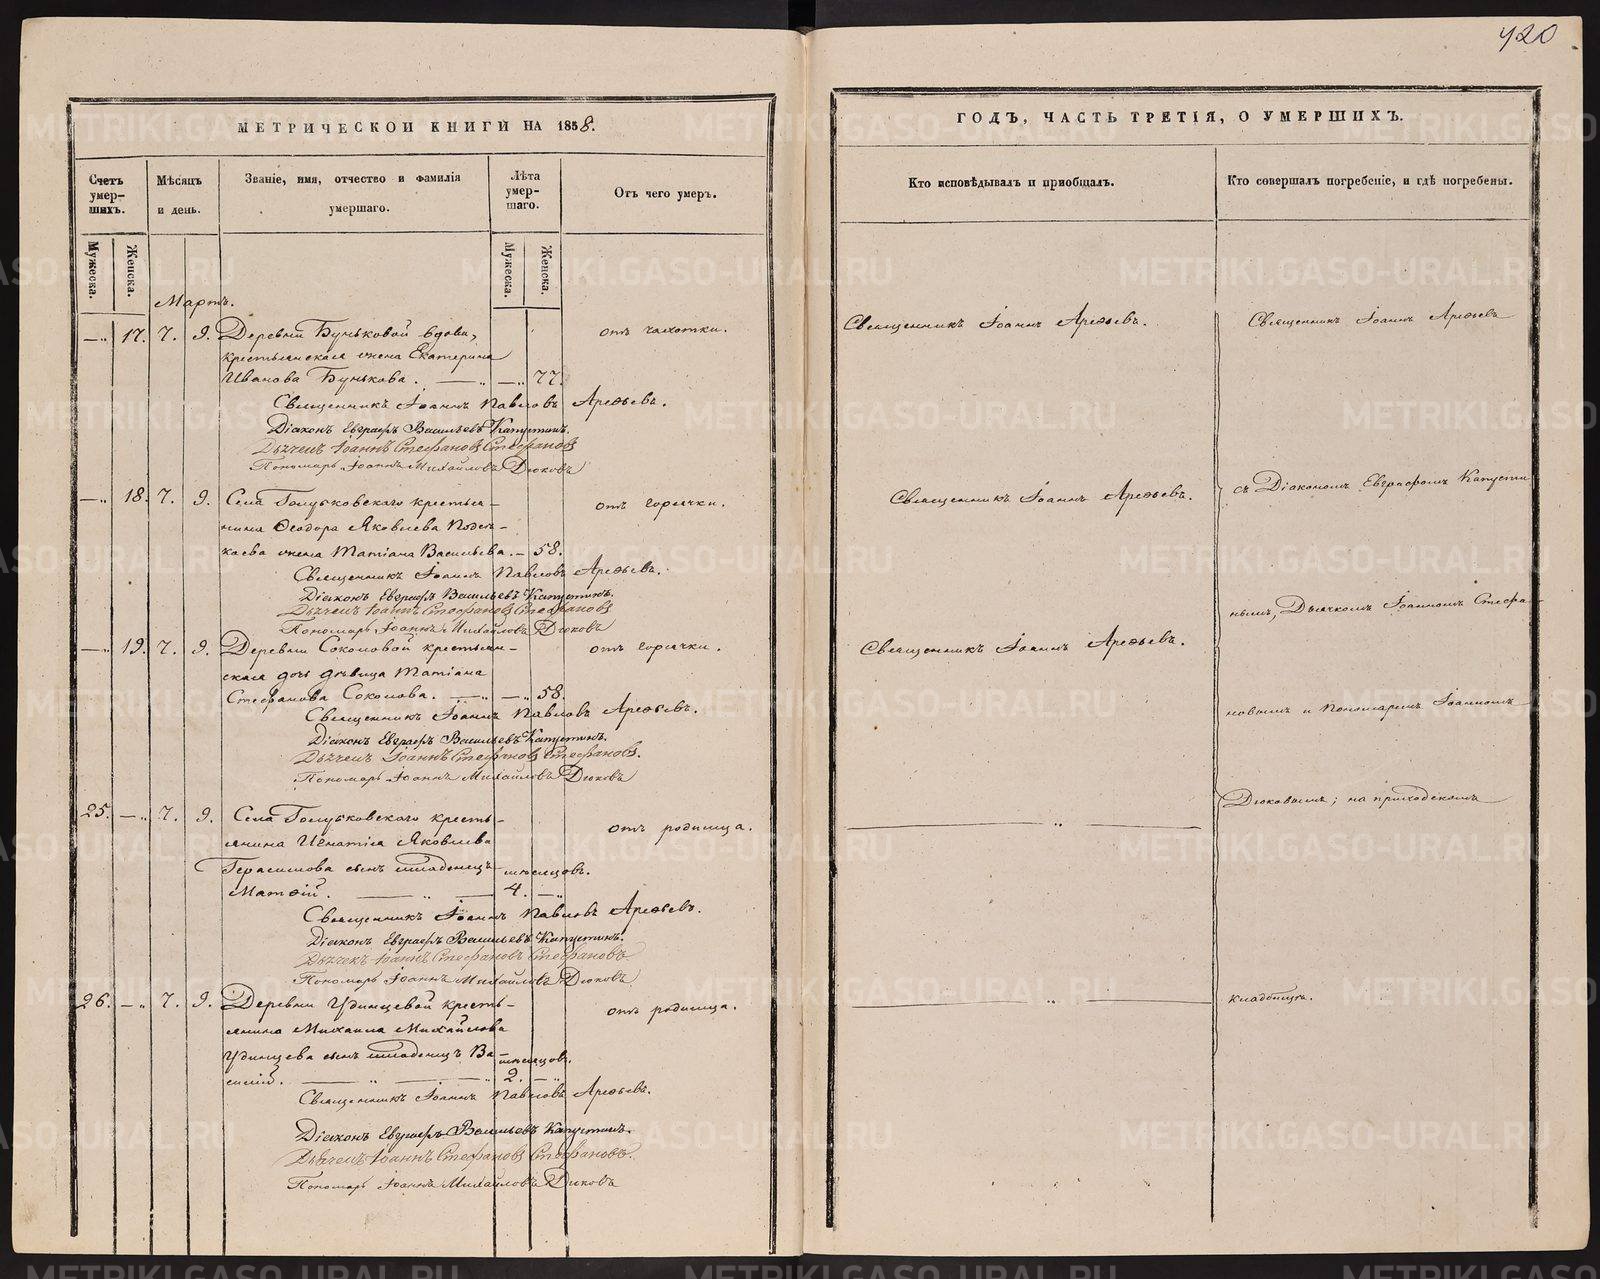 420
МЕТРИЧЕСКОЙ КНИГИ НА 1858.
Счетъ умер-шихъ.
Мѣсяцъ и день.
Званіе, имя, отчество и фамилія умершаго.
Лѣта умер-шаго.
Отъ чего умеръ.
Мужеска.
Женска.
Мужеска.
Женска.
Мартъ.
17. 7. 9. Деревни Буньковой вдова, отъ чахотки.
крестьянская жена Екатерина
Иванова Бунькова. 77.
Священникъ Іоаннъ Павловъ Арефьевъ.
Діаконъ Евграфъ Васильевъ Капустинъ.
Дьячекъ Іоаннъ Стефановъ Стефановъ
Пономарь Іоаннъ Михайловъ Дюковъ
18. 7. 9. Села Голубковскаго крестья- отъ горячки.
нина Ѳеодора Яковлева
жена Татіана Васильева. 58.
Священникъ Іоаннъ Павловъ Арефьевъ.
Діаконъ Евграфъ Васильевъ Капустинъ.
Дьячекъ Іоаннъ Стефановъ Стефановъ
Пономарь Іоаннъ Михайловъ Дюковъ
19. 7. 9. Деревни Соколовой крестьян- отъ горячки.
ская дочь дѣвица Татіана
Стефанова Соколова. 58.
Священникъ Іоаннъ Павловъ Арефьевъ.
Діаконъ Евграфъ Васильевъ Капустинъ.
Дьячекъ Іоаннъ Стефановъ Стефановъ.
Пономарь Іоаннъ Михайловъ Дюковъ
25. 7. 9. Села Голубковскаго кресть- отъ родимца.
янина Игнатія Яковлева
Герасимова сынъ младенецъ мѣсяцовъ.
Матѳій. 4.
Священникъ Іоаннъ Павловъ Арефьевъ.
Діаконъ Евграфъ Васильевъ Капустинъ.
Дьячекъ Іоаннъ Стефановъ Стефановъ
Пономарь Іоаннъ Михайловъ Дюковъ
26. 7. 9. Деревни Удинцевой кресть- отъ родимца.
янина Михаила Михайлова
Удинцева сынъ младенецъ Ва- мѣсяцовъ.
силій. 2.
Священникъ Іоаннъ Павловъ Арефьевъ.
Діаконъ Евграфъ Васильевъ Капустинъ.
Дьячекъ Іоаннъ Стефановъ Стефановъ.
Пономарь Іоаннъ Михайловъ Дюковъ
ГОДЪ, ЧАСТЬ ТРЕТІЯ, О УМЕРШИХЪ.
Кто исповѣдывалъ и пріобщалъ.
Кто совершалъ погребеніе, и гдѣ погребены.
Священникъ Іоаннъ Арефьевъ.
Священникъ Іоаннъ Арефьевъ.
Священникъ Іоаннъ Арефьевъ.
Священникъ Іоаннъ Арефьевъ
съ Діакономъ Евграфомъ Капусти
нымъ, Дьячкомъ Іоанномъ Стефа-
новымъ и Пономаремъ Іоанномъ
Дюковымъ; на приходскомъ
кладбищѣ.
METRIKI.GASO-URAL.RU